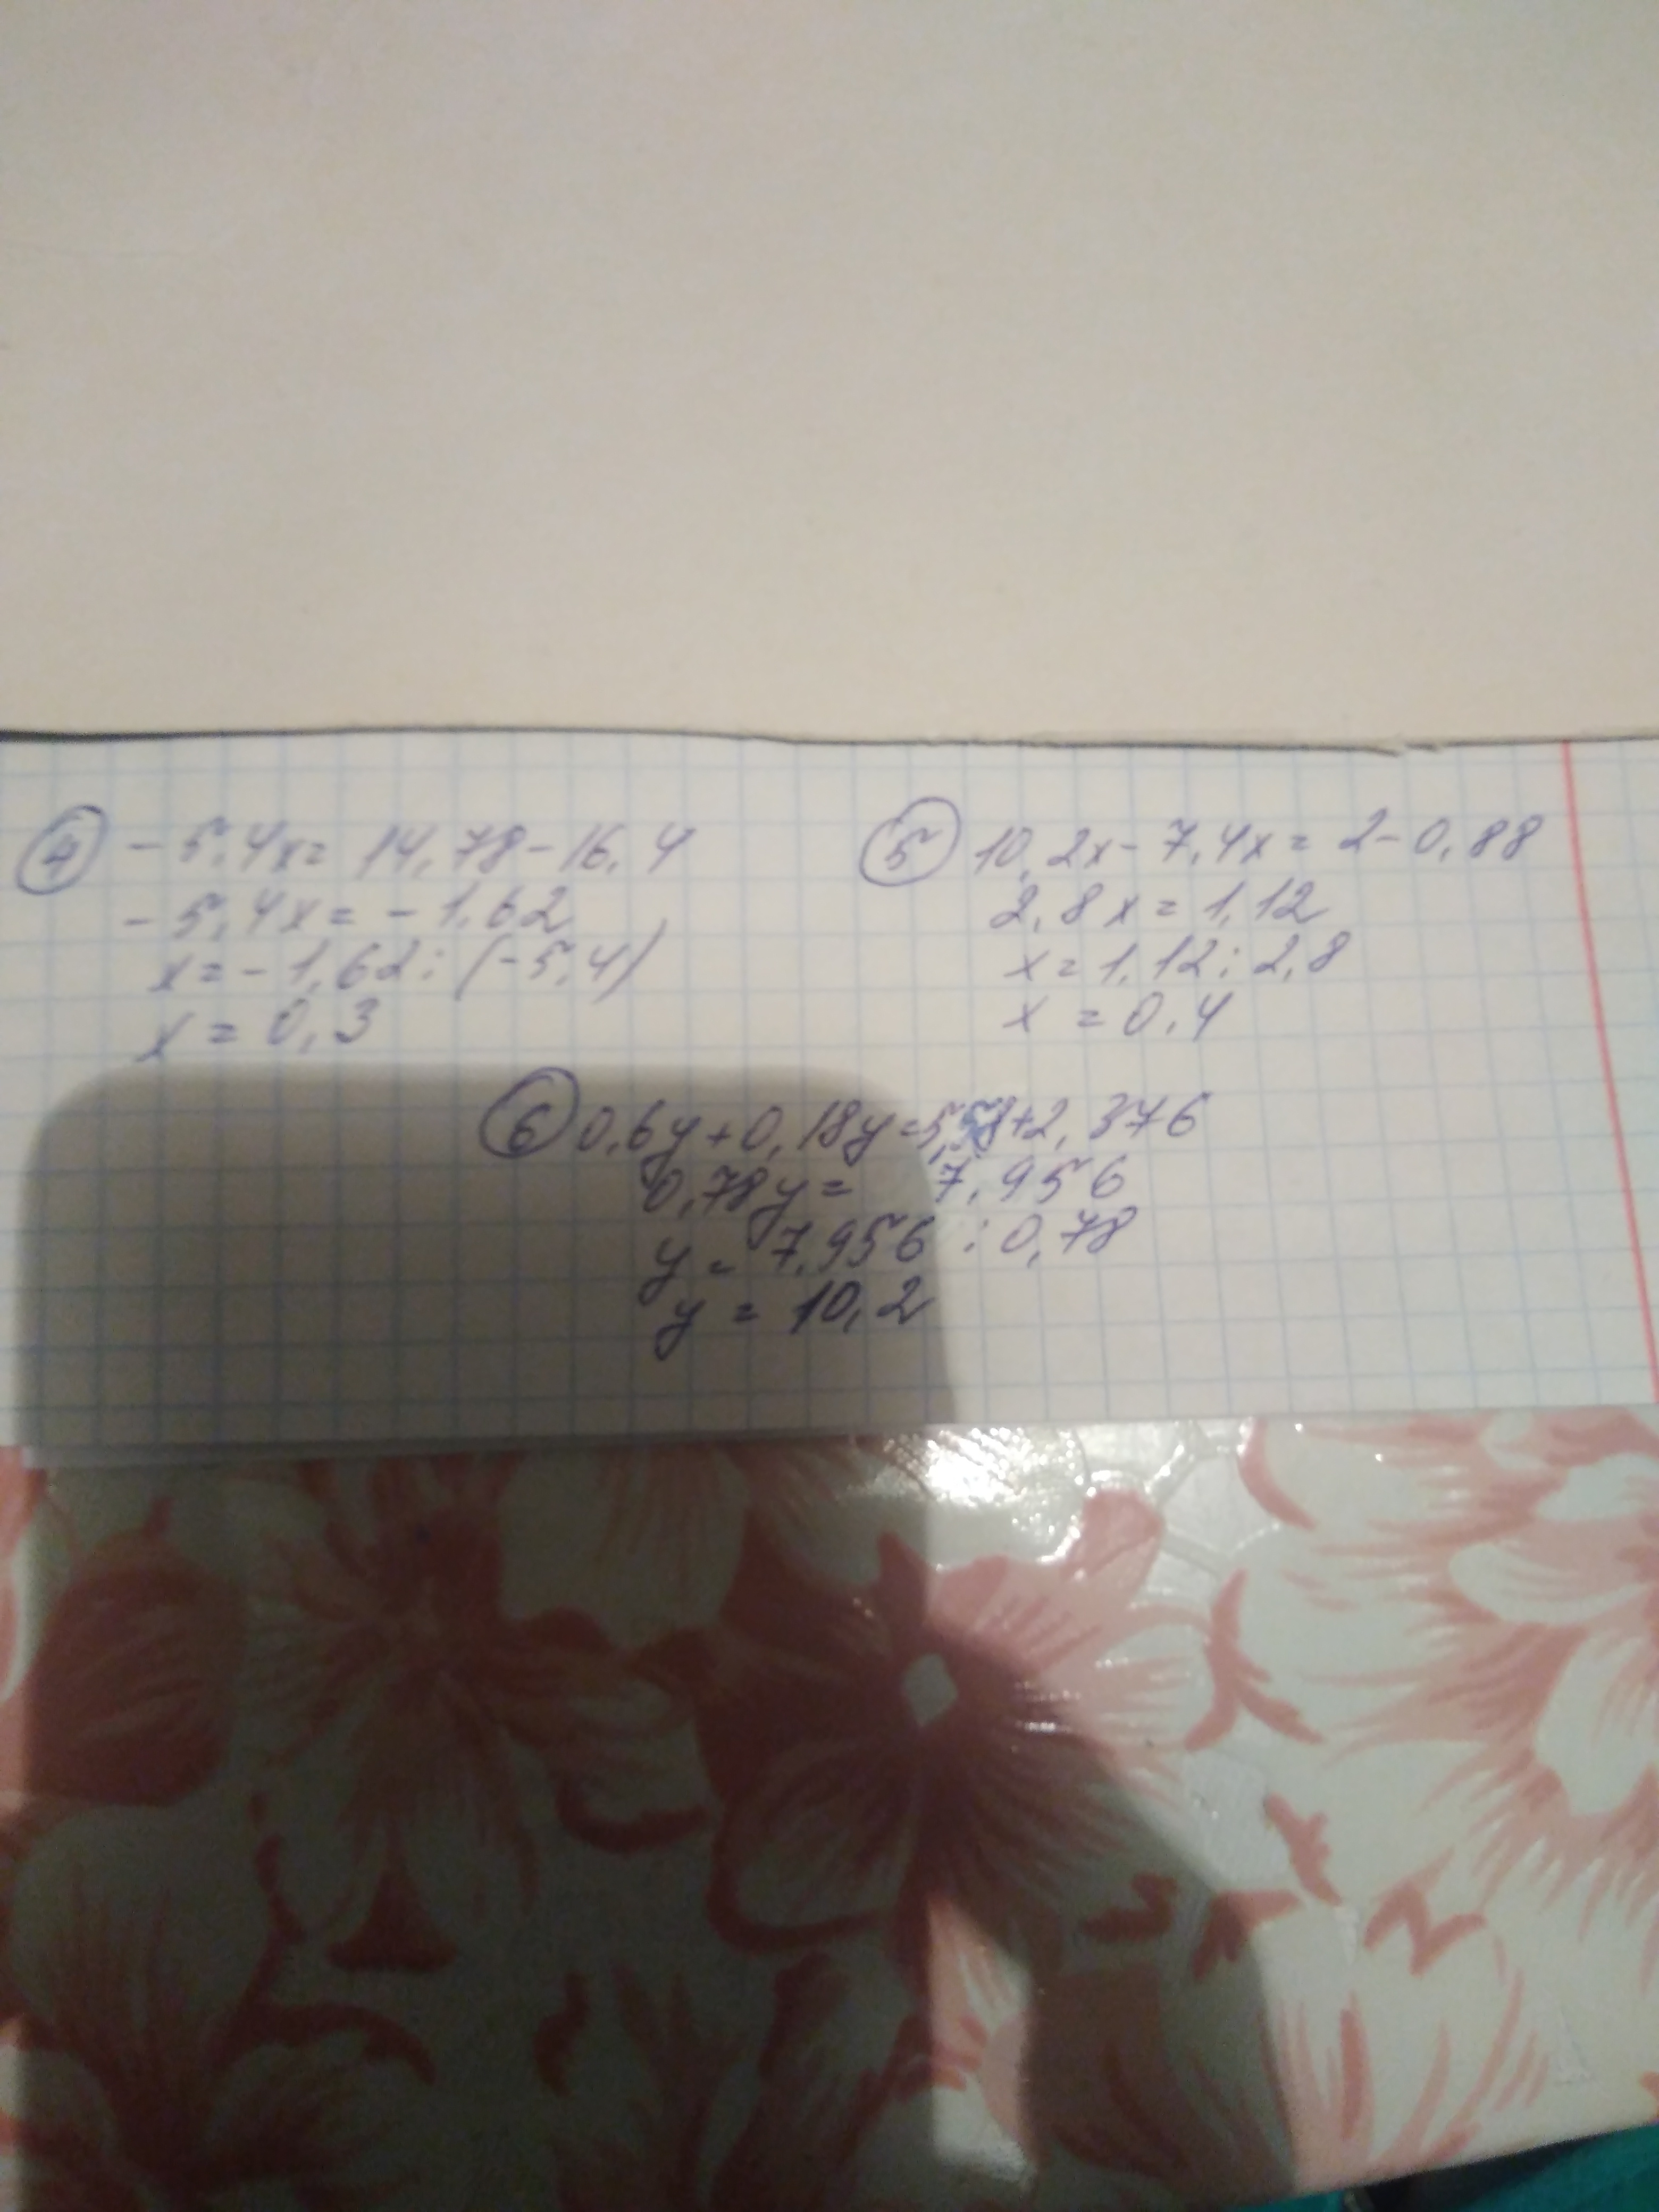 ④ -5,4x= 14,78-16,4
-5,4x = -1,62
x=-1,62:(-5,4)
x=0,3
⑤ 10,2x-7,4x=2-0,88
2,8x=1,12
x=1,12:2,8
x =0,4
⑥ 0,6y+0,18y=5,58+2,376
0,78y= 7,956
y= 7,956 :0,78
y = 10,2